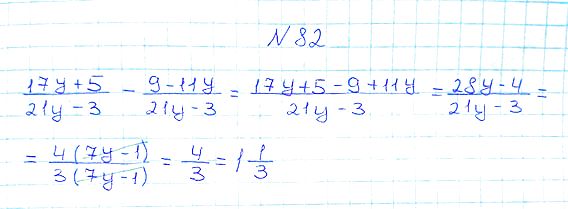 N 82
(17y+5)/(21y-3) - (9-11y)/(21y-3) = (17y+5-9+11y)/(21y-3) = (28y-4)/(21y-3) =
= (4(7y-1))/(3(7y-1)) = 4/3 = 1 1/3